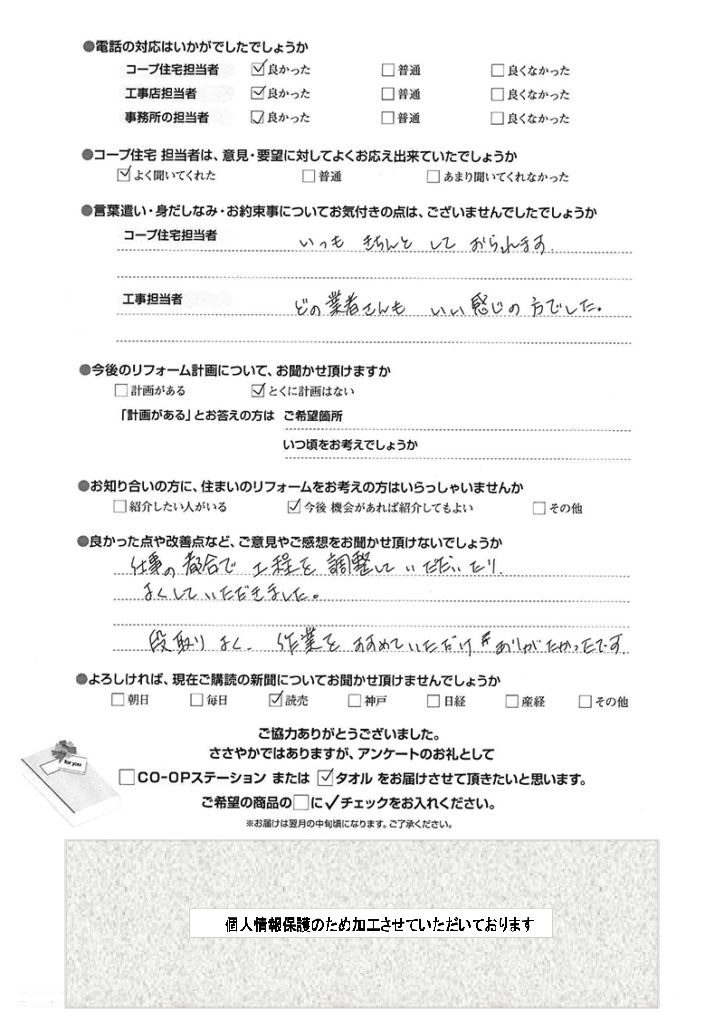 ●電話の対応はいかがでしたでしょうか
コープ住宅担当者 ☑良かった □普通 □良くなかった
工事店担当者 ☑良かった □普通 □良くなかった
事務所の担当者 ☑良かった □普通 □良くなかった
●コープ住宅 担当者は、意見・要望に対してよくお応え出来ていたでしょうか
☑よく聞いてくれた □普通 □あまり聞いてくれなかった
●言葉遣い・身だしなみ・お約束事についてお気付きの点は、ございませんでしたでしょうか
コープ住宅担当者 いつも きちんと して おられます.
工事担当者 どの業者さんも いい感じの方でした。
●今後のリフォーム計画について、お聞かせ頂けますか
□計画がある ☑とくに計画はない
「計画がある」とお答えの方は ご希望箇所
いつ頃をお考えでしょうか
●お知り合いの方に、住まいのリフォームをお考えの方はいらっしゃいませんか
□紹介したい人がいる ☑今後 機会があれば紹介してもよい □その他
●良かった点や改善点など、ご意見やご感想をお聞かせ頂けないでしょうか
仕事の都合で 工程を 調整して いただいたり
よくしていただきました。
段取りよく、作業を すすめていただけ ありがたかったです.
●よろしければ、現在ご購読の新聞についてお聞かせ頂けませんでしょうか
□朝日 □毎日 ☑読売 □神戸 □日経 □産経 □その他
ご協力ありがとうございました。
ささやかではありますが、アンケートのお礼として
for you
□CO-OPステーション または ☑タオル をお届けさせて頂きたいと思います。
ご希望の商品の□に✓チェックをお入れください。
※お届けは翌月の中旬頃になります。ご了承ください。
個人情報保護のため加工させていただいております